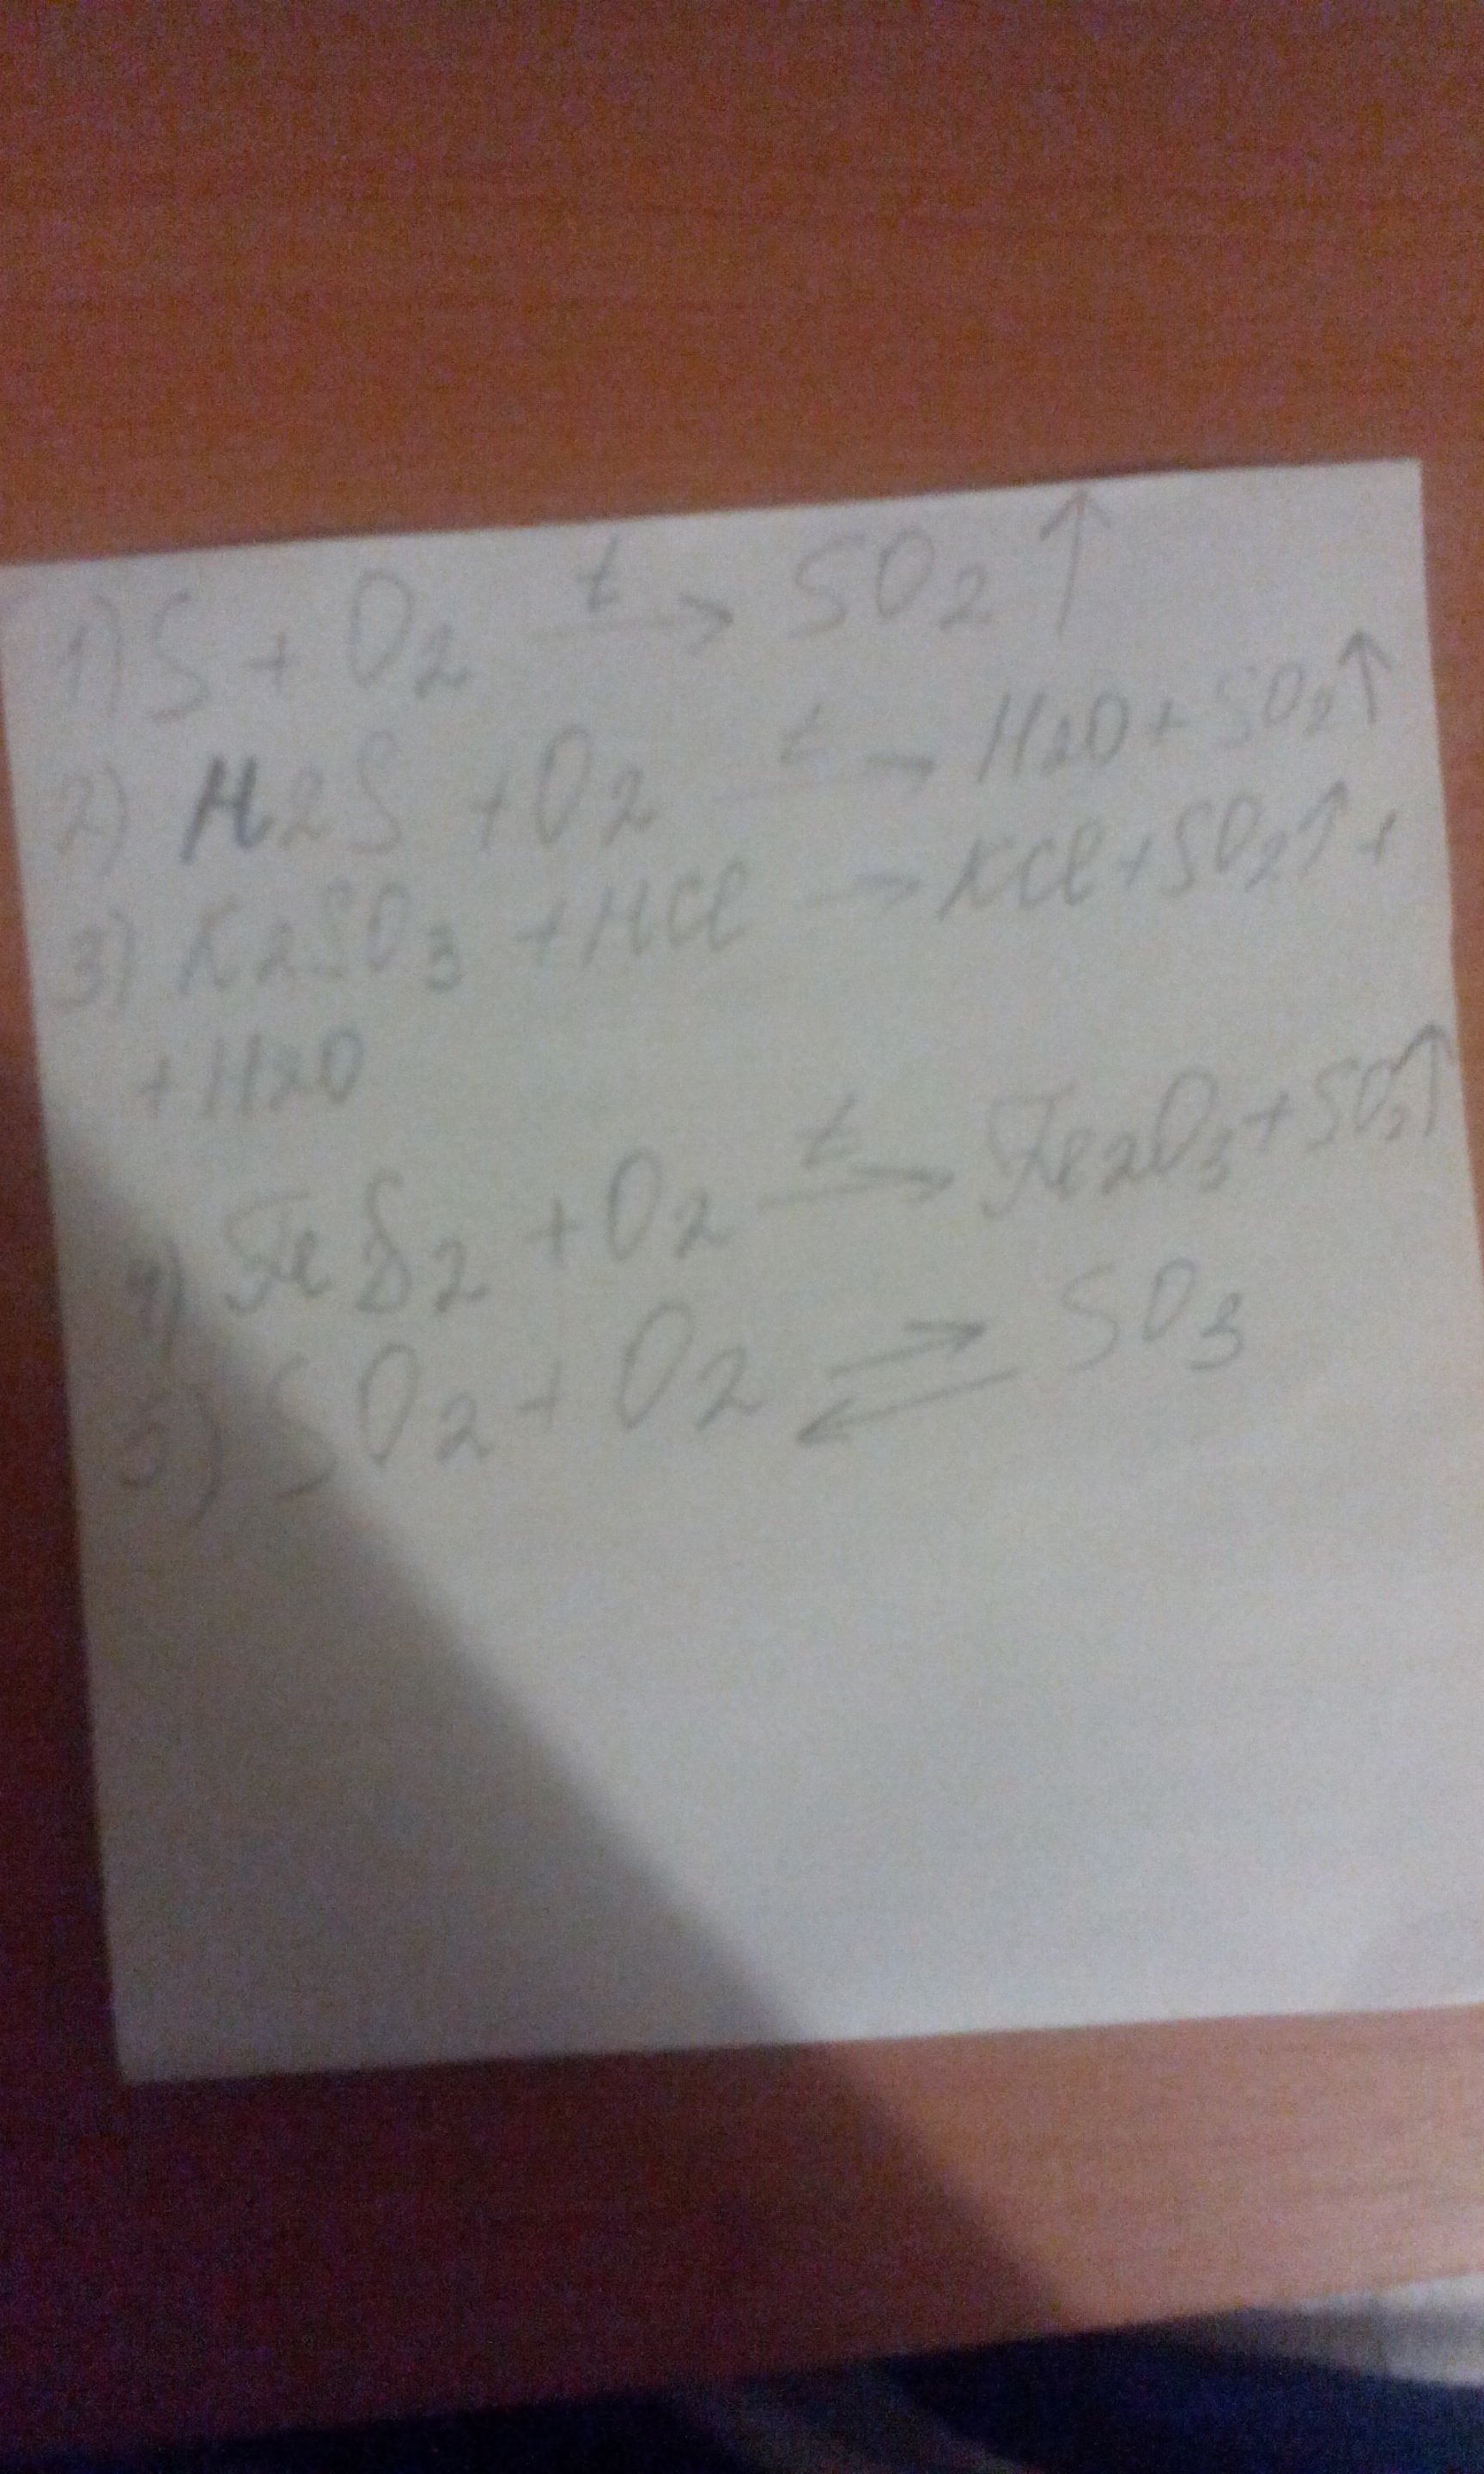 1) S + O2 t→ SO2↑
2) H2S + O2 t→ H2O + SO2↑
3) K2SO3 + HCl → KCl + SO2↑ +
+ H2O
4) FeS2 + O2 t→ Fe2O3 + SO2↑
5) SO2 + O2 ⇄ SO3